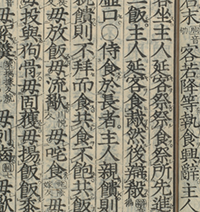 右末 客若降等執食興辭主人
客坐主人延客祭祭食祭所先進
飯主人延客食胾然後辯殽主
虛口○侍食於長者主人親饋則
饋則不拜而食共食不飽共飯
毋放飯毋流歠毋咤食毋
毋投與狗骨毋固獲毋揚飯飯黍
毋刺齒毋歠